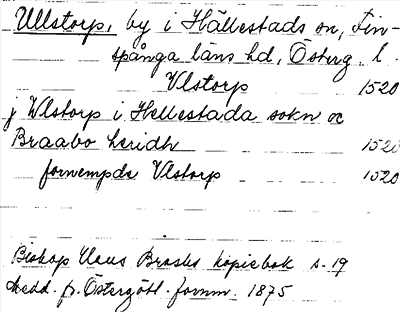 Ullstorp, by i Hällestads sn, Fin-
spånga läns hd, Österg. l.
Vlstorp 1520
j Vlstorp i Hellestada sokn oc
Braabo heridh 1520
fornempda Vlstorp 1520
Biskop Claus Brasks kopiebok s. 19
Medd. fr. Östergötl. fornm. 1875